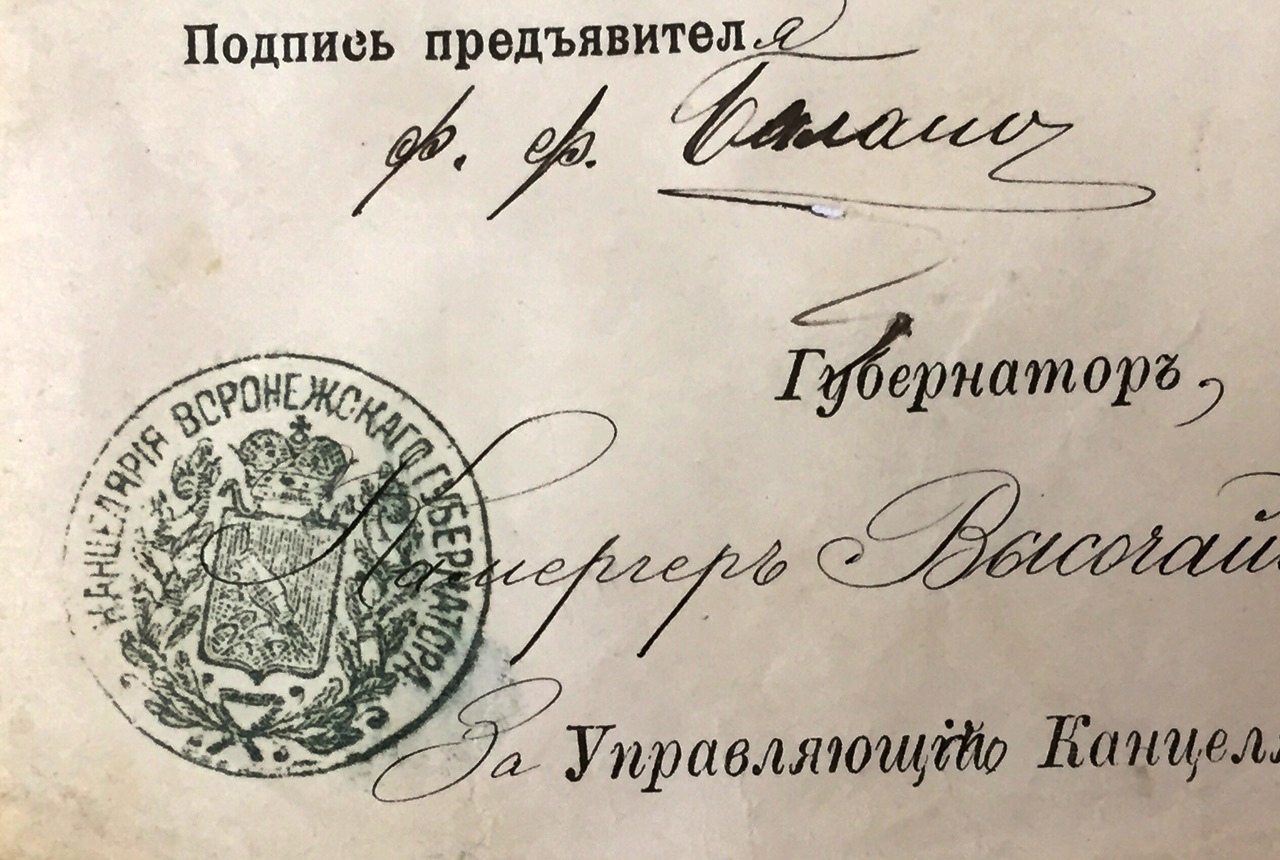 Подпись предъявителя
Ф. Ф.
Губернаторъ,
КАНЦЕЛЯРІЯ ВОРОНЕЖСКАГО ГУБЕРНАТОРА
Камергеръ Высочай
За Управляющій Канцел